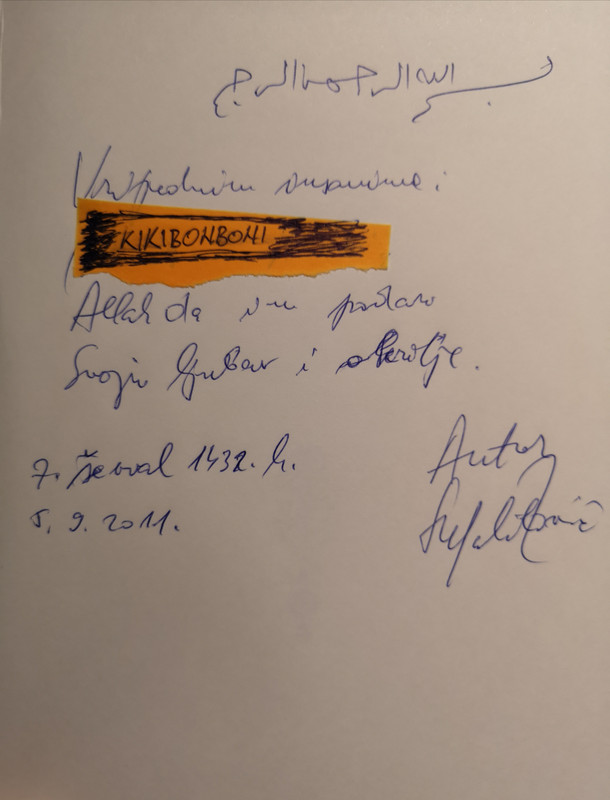 بسم الله الرحمن الرحيم
Vrijednim insanima i
KIKIBONBONI
Allah da im podari
Svoju ljubav i okrilje.
7. ševval 1432. h.
5. 9. 2011.
Autor